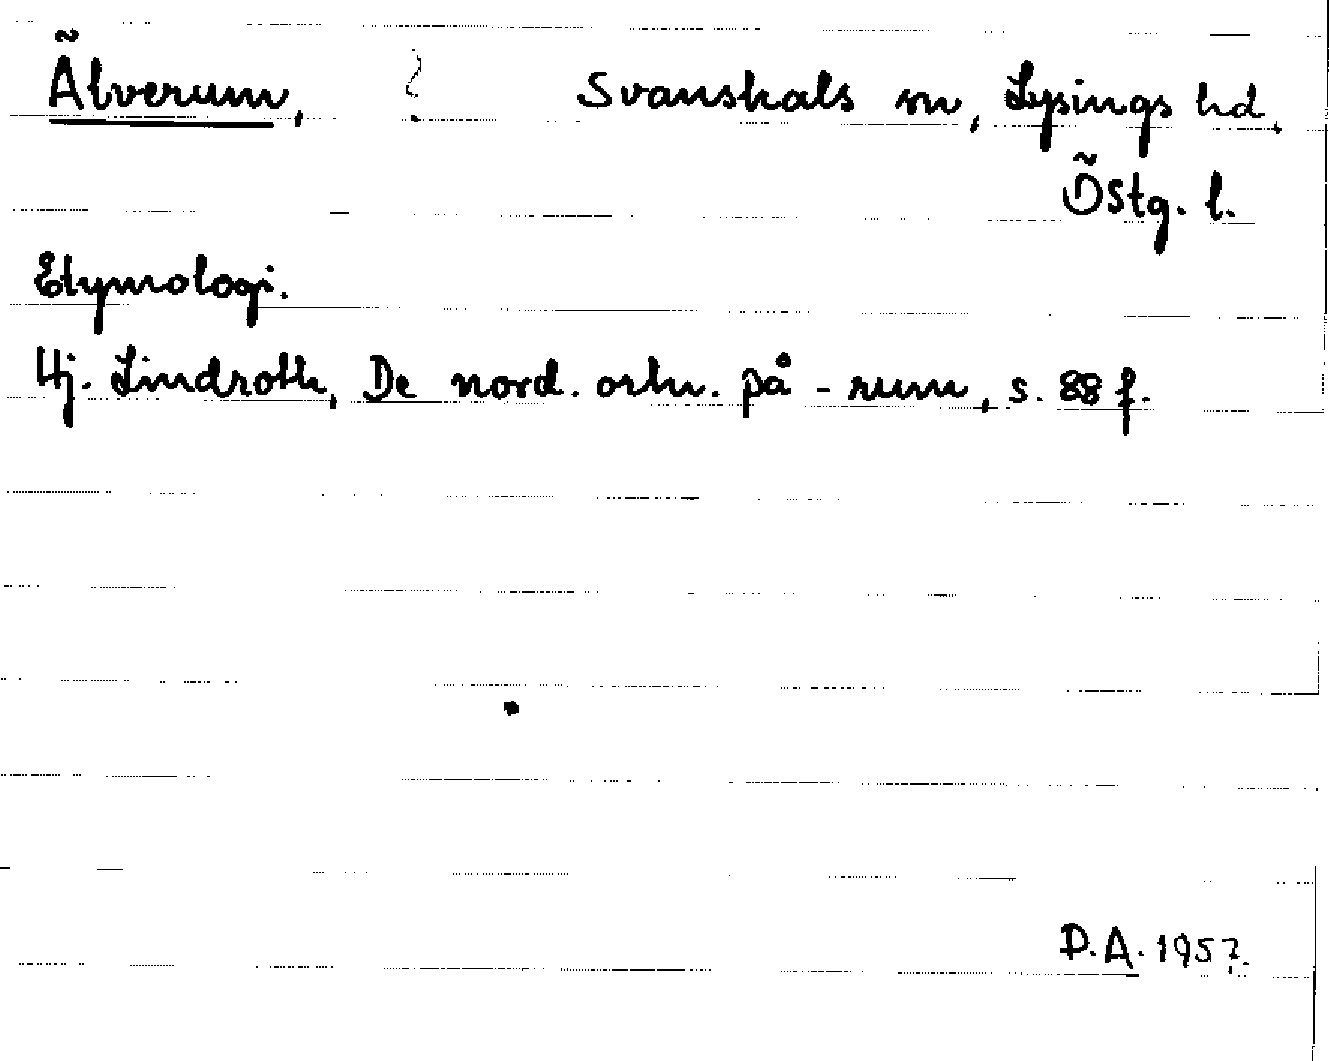 Älverum, ? Svanshals sn, Lysings hd.
Östg. l.
Etymologi.
Hj. Lindroth, De nord. ortn. på -rum, s. 88 f.
D.A. 1957.